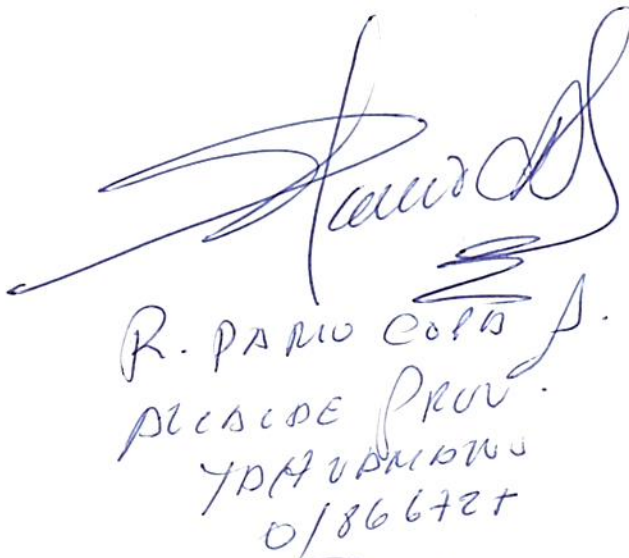 R. DARIO COPA A.
ALCALDE PROV.
TAHUAMANU
01866727